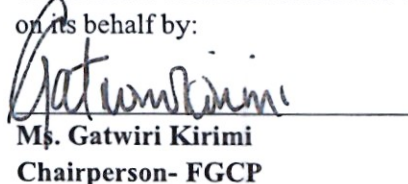 on its behalf by:
Gatwirikirimi
Ms. Gatwiri Kirimi
Chairperson- FGCP